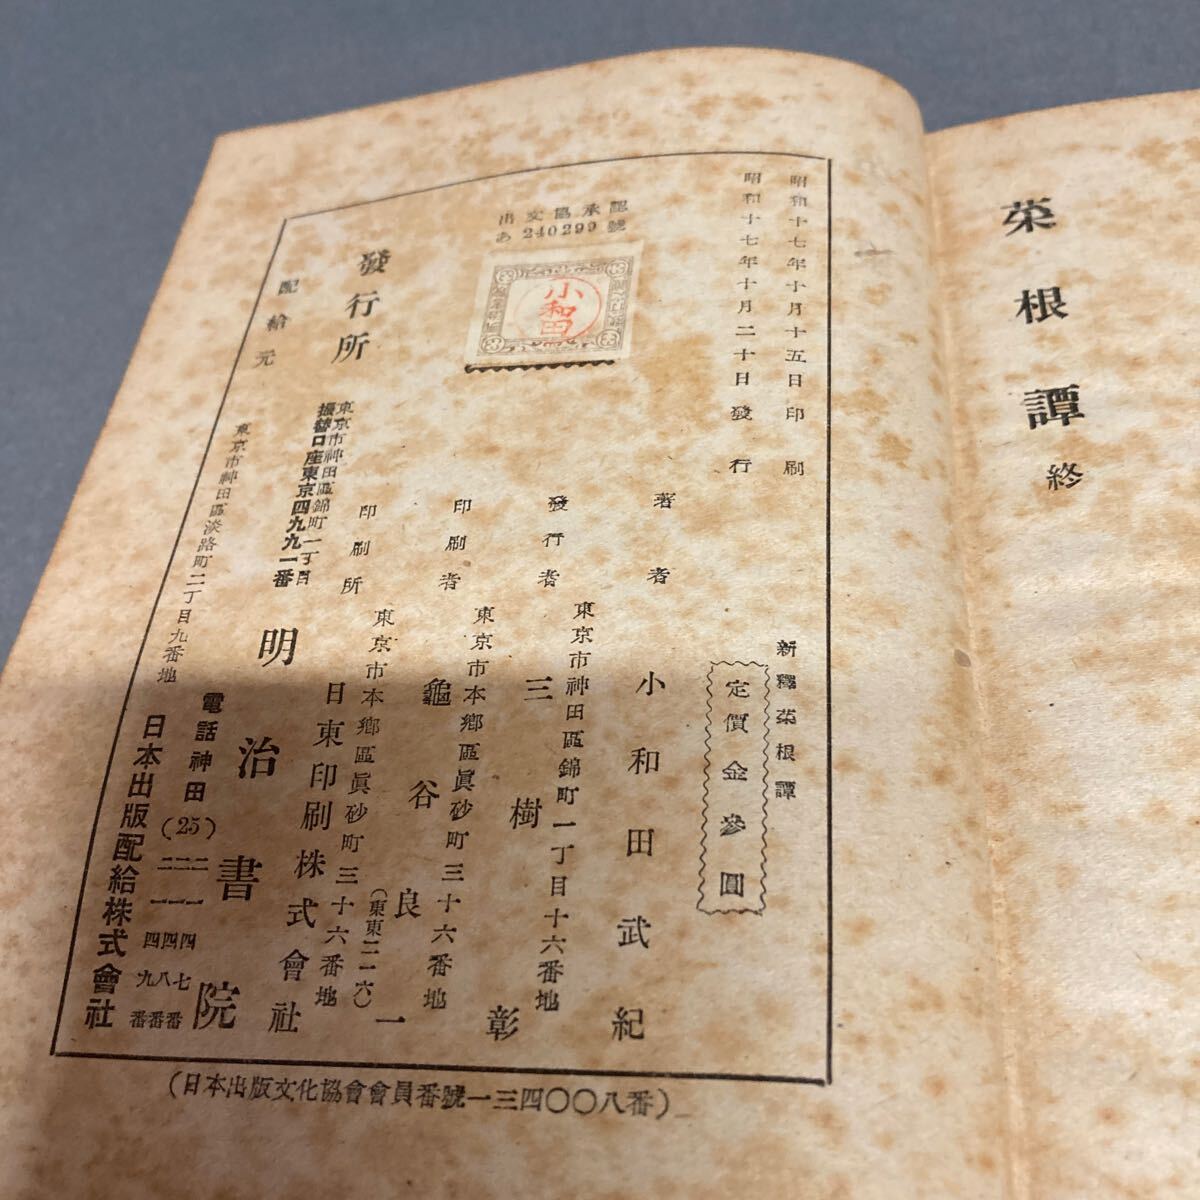 菜根譚 終
昭和十七年十月十五日印刷
昭和十七年十月二十日發行
出文協承認
あ240299號
小和田
新釋菜根譚
定價金參圓
著者 小和田武紀
東京市神田區錦町一丁目十六番地
發行者 三樹彰
東京市本鄉區眞砂町三十六番地
印刷者 龜谷良一
東京市本鄉區眞砂町三十六番地
(東東二一六)
印刷所 日東印刷株式會社
發行所
東京市神田區錦町一丁目
振替口座東京四九九一番
明治書院
電話神田(25)
二一四七番
二一四八番
二一四九番
配給元
東京市神田區淡路町二丁目九番地
日本出版配給株式會社
(日本出版文化協會會員番號一三四〇〇八番)